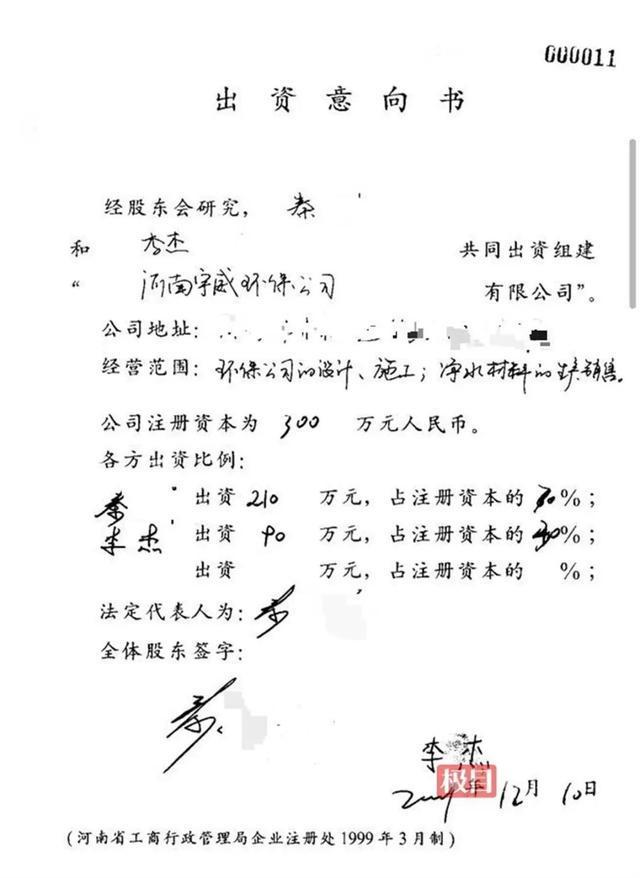 000011
出资意向书
经股东会研究，秦
和 李杰 共同出资组建
“河南宇威环保公司 有限公司”。
公司地址：
经营范围：环保公司的设计、施工；净水材料的生产销售。
公司注册资本为 300 万元人民币。
各方出资比例：
秦 出资 210 万元，占注册资本的 70%；
李杰 出资 90 万元，占注册资本的 30%；
出资 万元，占注册资本的 %；
法定代表人为：秦
全体股东签字：
秦
李杰
极目
年 12月 10日
（河南省工商行政管理局企业注册处1999年3月制）